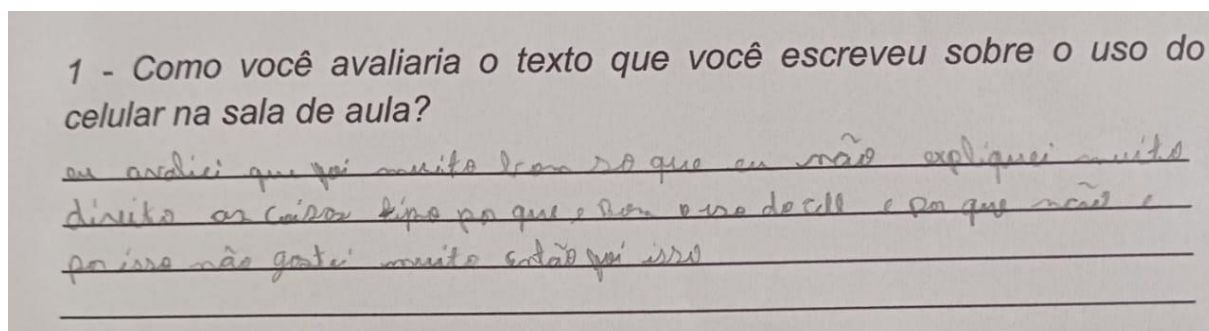 1 - Como você avaliaria o texto que você escreveu sobre o uso do
celular na sala de aula?
eu avaliei que foi muito bom so que eu não expliquei muito
direito as coisas tipo por que e bom o uso do cell e por que não e
por isso não gostei muito então foi isso